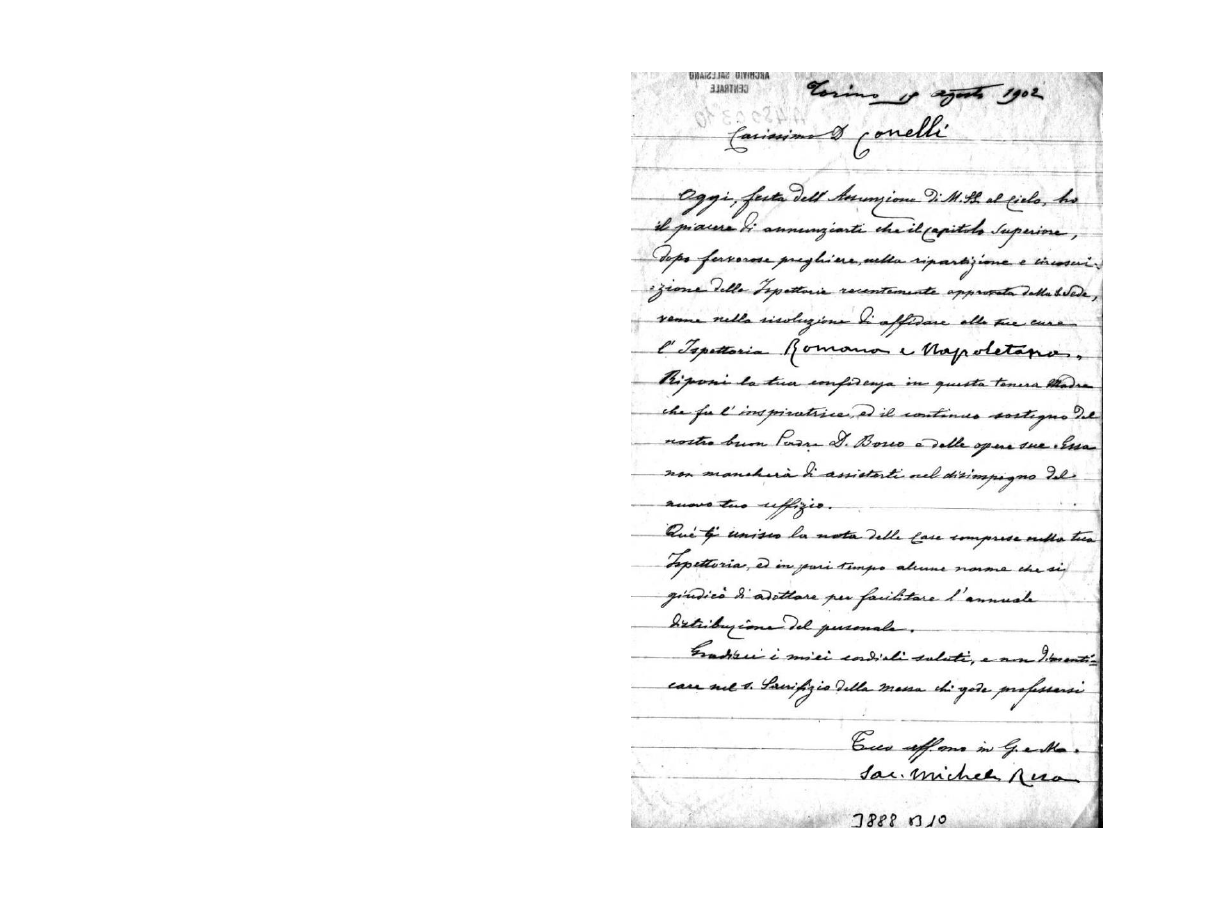 ARCHIVIO SALESIANO
CENTRALE
Torino 15 agosto 1902
Carissimo D. Conelli
Oggi, festa dell'Assunzione di M. SS. al Cielo, ho
il piacere di annunziarti che il Capitolo Superiore,
dopo fervorose preghiere, nella ripartizione e circoscri-
zione delle Ispettorie recentemente approvata dalla S. Sede,
venne nella risoluzione di affidare alle tue cure
l'Ispettoria Romana e Napoletana.
Riponi la tua confidenza in questa tenera Madre
che fu l'inspiratrice, ed il continuo sostegno del
nostro buon Padre D. Bosco e delle opere sue. Essa
non mancherà di assisterti nel disimpegno del
nuovo tuo uffizio.
Qui ti unisco la nota delle Case comprese nella tua
Ispettoria, ed in pari tempo alcune norme che si
giudicò di adottare per facilitare l'annuale
distribuzione del personale.
Gradisci i miei cordiali saluti, e non dimenti=
care nel S. Sacrifizio della messa chi gode professarsi
Tuo aff.mo in G. e Ma.
Sac. Michele Rua
3888 B 10